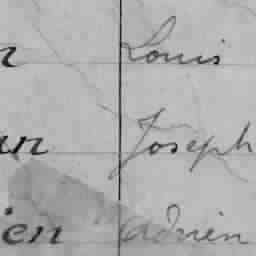 n Louis
an Joseph
ien Adrien